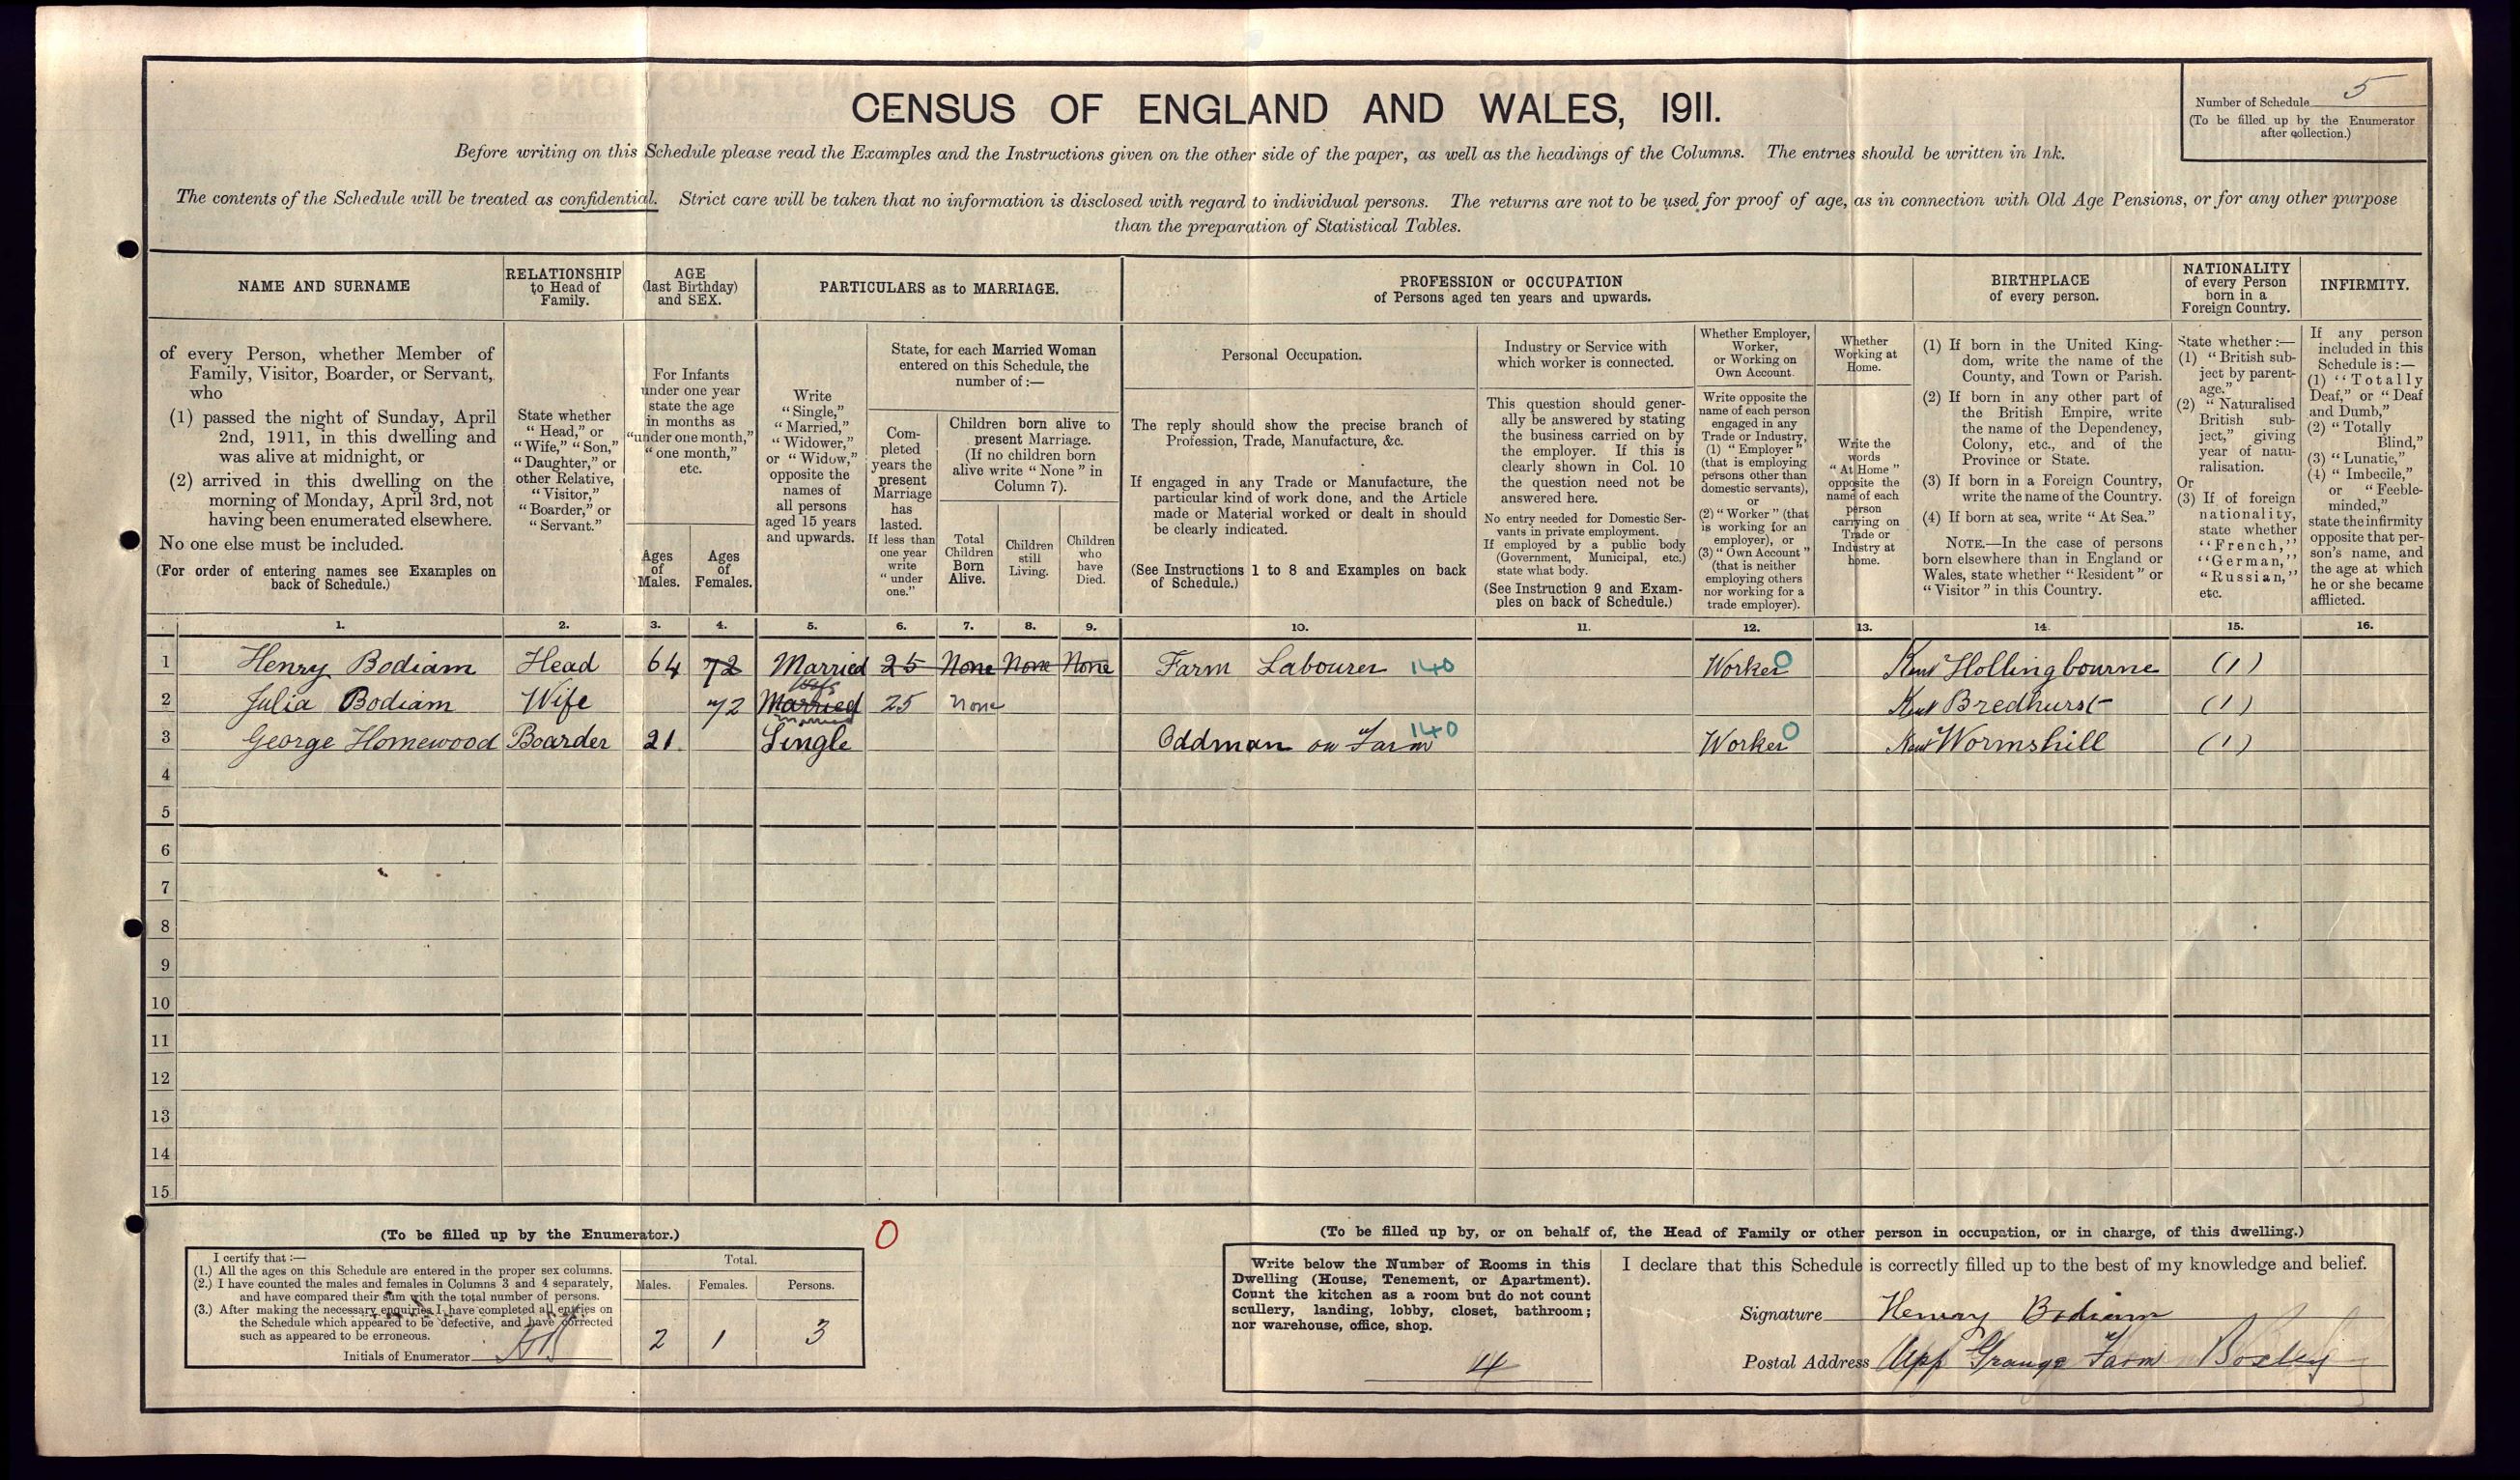 CENSUS OF ENGLAND AND WALES, 1911.
Number of Schedule 5
(To be filled up by the Enumerator
after collection.)
Before writing on this Schedule please read the Examples and the Instructions given on the other side of the paper, as well as the headings of the Columns. The entries should be written in Ink.
The contents of the Schedule will be treated as confidential. Strict care will be taken that no information is disclosed with regard to individual persons. The returns are not to be used for proof of age, as in connection with Old Age Pensions, or for any other purpose
than the preparation of Statistical Tables.
NAME AND SURNAME
of every Person, whether Member of
Family, Visitor, Boarder, or Servant,
who
(1) passed the night of Sunday, April
2nd, 1911, in this dwelling and
was alive at midnight, or
(2) arrived in this dwelling on the
morning of Monday, April 3rd, not
having been enumerated elsewhere.
No one else must be included.
(For order of entering names see Examples on
back of Schedule.)
RELATIONSHIP
to Head of
Family.
State whether
"Head," or
"Wife," "Son,"
"Daughter," or
other Relative,
"Visitor,"
"Boarder," or
"Servant."
AGE
(last Birthday)
and SEX.
For Infants
under one year
state the age
in months as
"under one month,"
"one month,"
etc.
Ages
of
Males.
Ages
of
Females.
PARTICULARS as to MARRIAGE.
Write
"Single,"
"Married,"
"Widower,"
or "Widow,"
opposite the
names of
all persons
aged 15 years
and upwards.
State, for each Married Woman
entered on this Schedule, the
number of:—
Com-
pleted
years the
present
Marriage
has
lasted.
If less than
one year
write
"under
one."
Children born alive to
present Marriage.
(If no children born
alive write "None" in
Column 7).
Total
Children
Born
Alive.
Children
still
Living.
Children
who
have
Died.
PROFESSION or OCCUPATION
of Persons aged ten years and upwards.
Personal Occupation.
The reply should show the precise branch of
Profession, Trade, Manufacture, &c.
If engaged in any Trade or Manufacture, the
particular kind of work done, and the Article
made or Material worked or dealt in should
be clearly indicated.
(See Instructions 1 to 8 and Examples on back
of Schedule.)
Industry or Service with
which worker is connected.
This question should gener-
ally be answered by stating
the business carried on by
the employer. If this is
clearly shown in Col. 10
the question need not be
answered here.
No entry needed for Domestic Ser-
vants in private employment.
If employed by a public body
(Government, Municipal, etc.)
state what body.
(See Instruction 9 and Exam-
ples on back of Schedule.)
Whether Employer,
Worker,
or Working on
Own Account.
Write opposite the
name of each person
engaged in any
Trade or Industry,
(1) "Employer"
(that is employing
persons other than
domestic servants),
or
(2) "Worker" (that
is working for an
employer), or
(3) "Own Account"
(that is neither
employing others
nor working for a
trade employer).
Whether
Working at
Home.
Write the
words
"At Home"
opposite the
name of each
person
carrying on
Trade or
Industry at
home.
BIRTHPLACE
of every person.
(1) If born in the United King-
dom, write the name of the
County, and Town or Parish.
(2) If born in any other part of
the British Empire, write
the name of the Dependency,
Colony, etc., and of the
Province or State.
(3) If born in a Foreign Country,
write the name of the Country.
(4) If born at sea, write "At Sea."
NOTE.—In the case of persons
born elsewhere than in England or
Wales, state whether "Resident" or
"Visitor" in this Country.
NATIONALITY
of every Person
born in a
Foreign Country.
State whether:—
(1) "British sub-
ject by parent-
age."
(2) "Naturalised
British sub-
ject," giving
year of natu-
ralisation.
Or
(3) If of foreign
nationality,
state whether
"French,"
"German,"
"Russian,"
etc.
INFIRMITY.
If any person
included in this
Schedule is:—
(1) "Totally
Deaf," or "Deaf
and Dumb,"
(2) "Totally
Blind,"
(3) "Lunatic,"
(4) "Imbecile,"
or "Feeble-
minded,"
state the infirmity
opposite that per-
son's name, and
the age at which
he or she became
afflicted.
1. 2. 3. 4. 5. 6. 7. 8. 9. 10. 11. 12. 13. 14. 15. 16.
1 Henry Bodiam Head 64 72 Married 25 None None None Farm Labourer 140 Worker 0 Kent Hollingbourne (1)
Wife
2 Julia Bodiam Wife 72 Married 25 None Kent Bredhurst (1)
married
3 George Homewood Boarder 21 Single Oddman on Farm 140 Worker 0 Kent Wormshill (1)
4
5
6
7
8
9
10
11
12
13
14
15
(To be filled up by the Enumerator.)
I certify that:—
(1.) All the ages on this Schedule are entered in the proper sex columns.
(2.) I have counted the males and females in Columns 3 and 4 separately,
and have compared their sum with the total number of persons.
(3.) After making the necessary enquiries I have completed all entries on
the Schedule which appeared to be defective, and have corrected
such as appeared to be erroneous.
Initials of Enumerator
Total.
Males. Females. Persons.
2 1 3
0
(To be filled up by, or on behalf of, the Head of Family or other person in occupation, or in charge, of this dwelling.)
Write below the Number of Rooms in this
Dwelling (House, Tenement, or Apartment).
Count the kitchen as a room but do not count
scullery, landing, lobby, closet, bathroom;
nor warehouse, office, shop.
4
I declare that this Schedule is correctly filled up to the best of my knowledge and belief.
Signature Henry Bodiam
Postal Address Upp Grange Farm Boxley